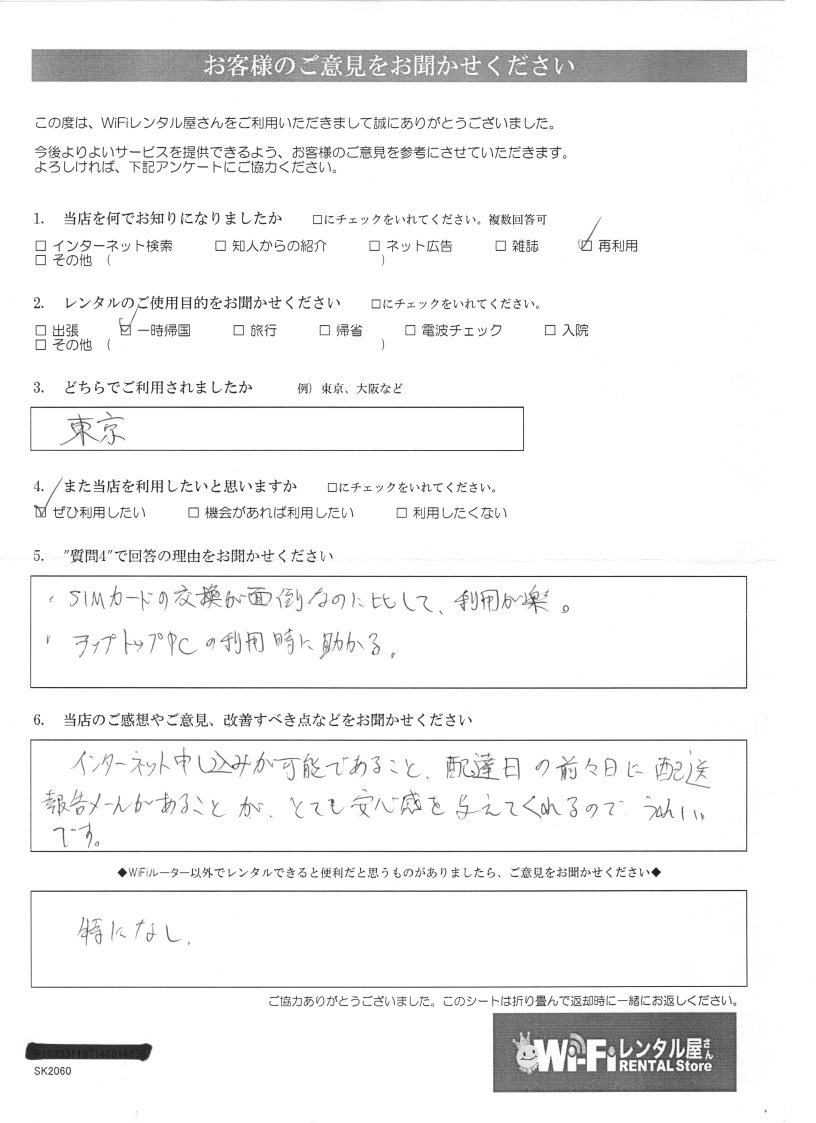 お客様のご意見をお聞かせください
この度は、WiFiレンタル屋さんをご利用いただきまして誠にありがとうございました。
今後よりよいサービスを提供できるよう、お客様のご意見を参考にさせていただきます。
よろしければ、下記アンケートにご協力ください。
1. 当店を何でお知りになりましたか □にチェックをいれてください。複数回答可
□ インターネット検索 □ 知人からの紹介 □ ネット広告 □ 雑誌 ☑ 再利用
□ その他 ( )
2. レンタルのご使用目的をお聞かせください □にチェックをいれてください。
□ 出張 ☑ 一時帰国 □ 旅行 □ 帰省 □ 電波チェック □ 入院
□ その他 ( )
3. どちらでご利用されましたか 例）東京、大阪など
東京
4. また当店を利用したいと思いますか □にチェックをいれてください。
☑ ぜひ利用したい □ 機会があれば利用したい □ 利用したくない
5. "質問4"で回答の理由をお聞かせください
・SIMカードの交換が面倒なのに比して、利用が楽。
・ラップトップPCの利用時に助かる。
6. 当店のご感想やご意見、改善すべき点などをお聞かせください
インターネット申し込みが可能であること、配達日の前々日に配送
報告メールがあることが、とても安心感を与えてくれるので うれしい
です。
◆WiFiルーター以外でレンタルできると便利だと思うものがありましたら、ご意見をお聞かせください◆
特になし.
ご協力ありがとうございました。このシートは折り畳んで返却時に一緒にお返しください。
SK2060
Wi-Fiレンタル屋さん
RENTAL Store